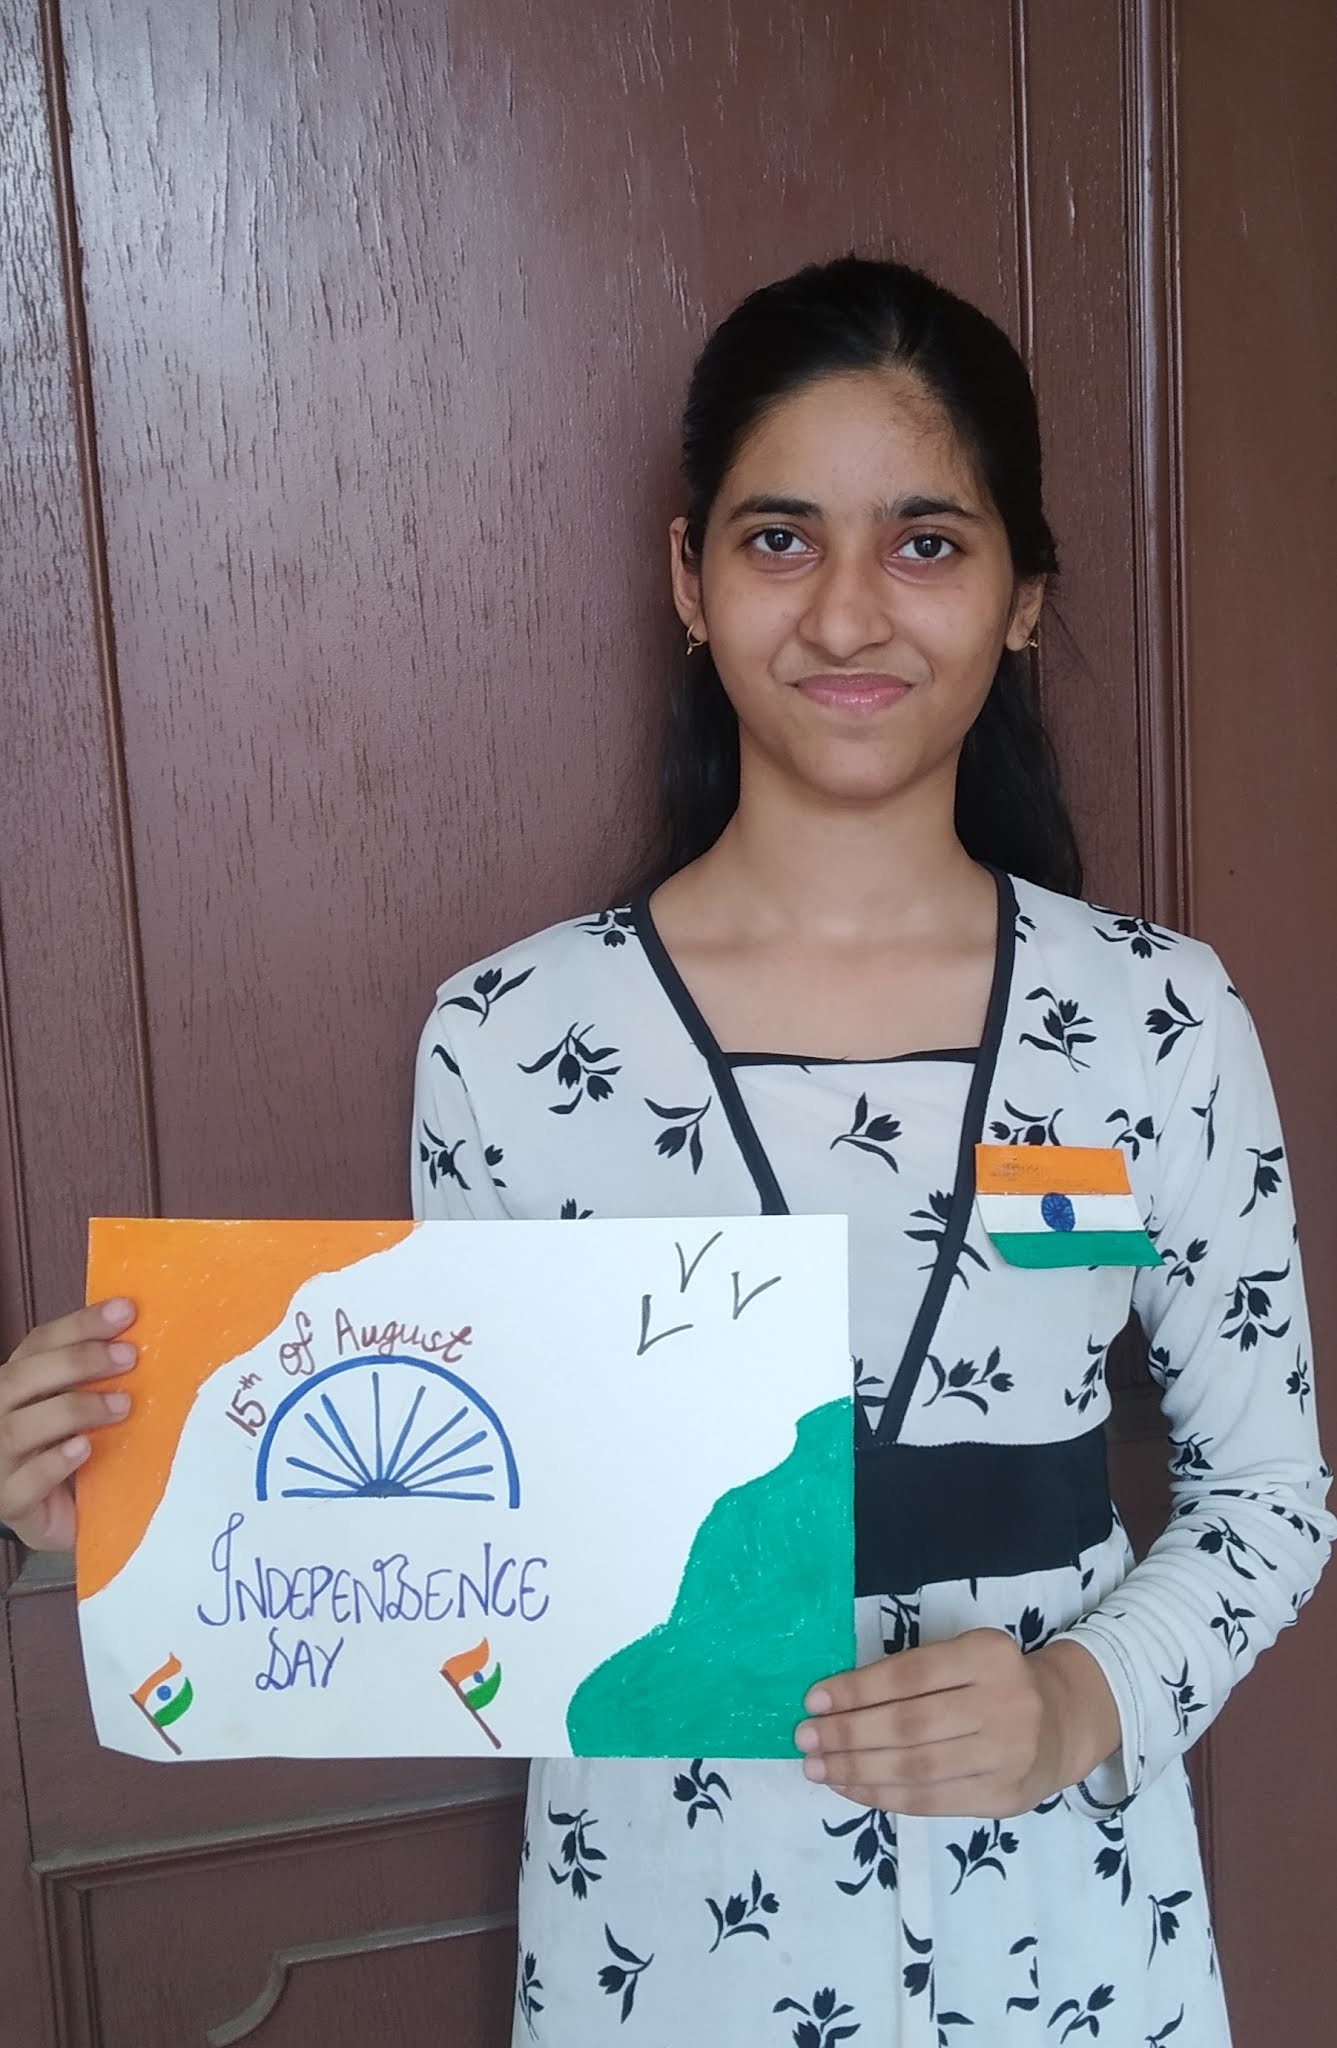 15th of August
INDEPENDENCE
DAY